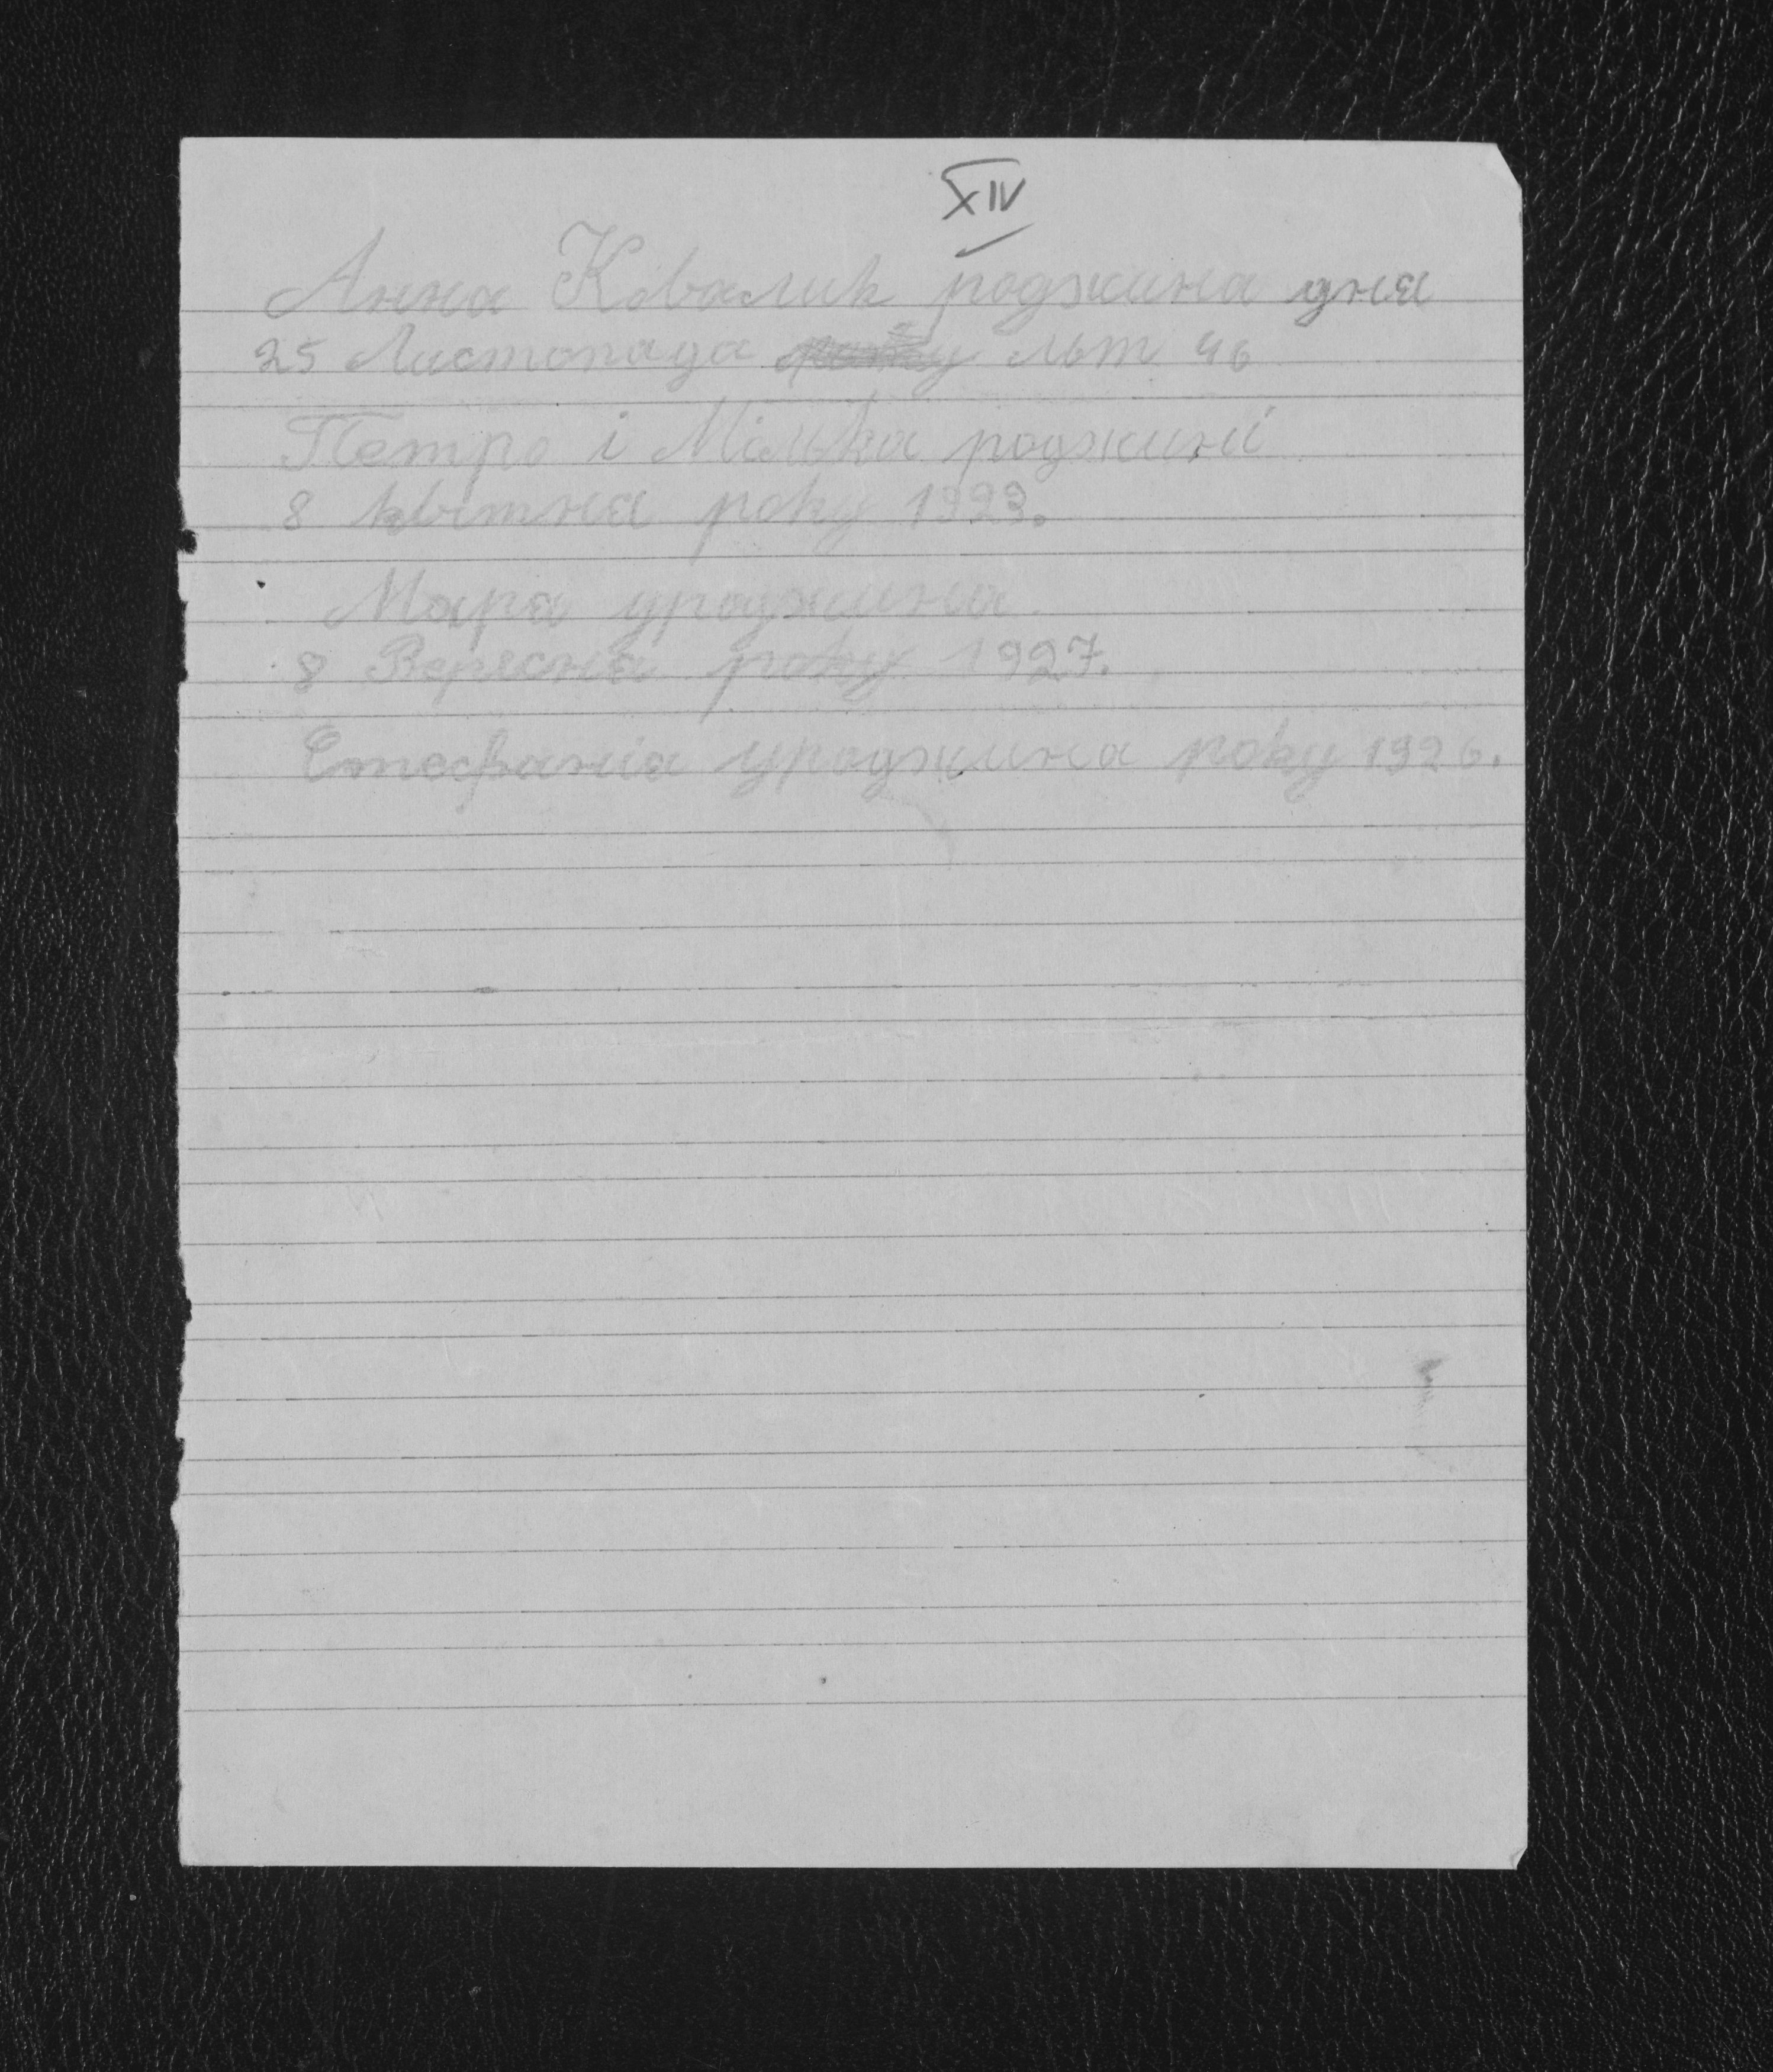 XIV
Анна Ковалик роджина дня
25 Листопада року льт 46
Петро і Мілька роджині
8 квітня року 1923.
Маря уроджина
8 Вересня року 1927.
Стефанія уроджина року 1926.